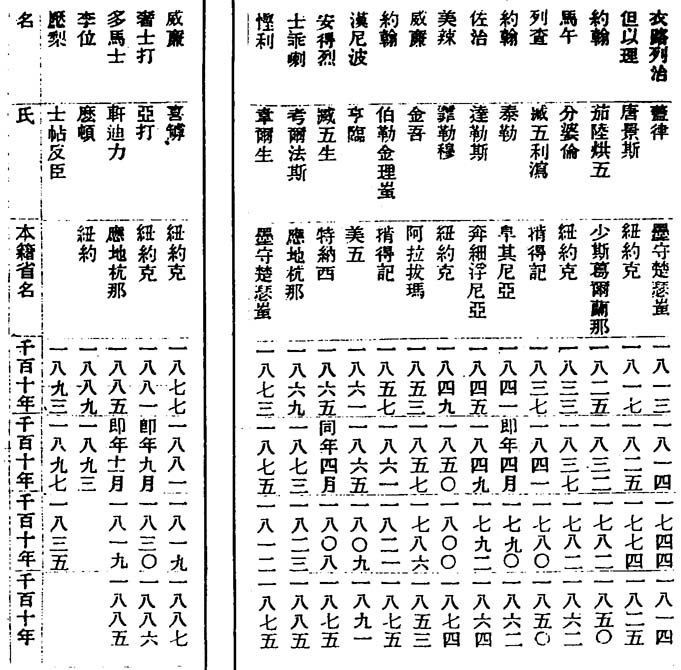 衣路列治 律 墨守楚瑟蚩 一八一三 一八一四 一七四四 一八一四
但以理 唐景斯 紐約克 一八一七 一八二五 一七七四 一八二五
約翰 茄陸烘五 少斯葛爾蘭那 一八二五 一八三二 一七八二 一八五〇
馬午 分婆倫 紐約克 一八三三 一八三七 一七八二 一八六二
列查 臧五利瀉 揹得記 一八三七 一八四一 一七八〇 一八五〇
約翰 泰勒 卑其尼亞 一八四一 即年四月 一七九〇 一八六二
佐治 達勒斯 奔細浮尼亞 一八四五 一八四九 一七九二 一八六四
美辣 霏勒穆 紐約克 一八四九 一八五〇 一八〇〇 一八七四
威廉 金吾 阿拉拔瑪 一八五三 一八五七 一七八六 一八五三
約翰 伯勒金理蚩 揹得記 一八五七 一八六一 一八二一 一八七五
漢尼波 亨臨 美五 一八六一 一八六五 一八〇九 一八九一
安得烈 臧五生 特納西 一八六五 同年四月 一八〇八 一八七五
士乖喇 考爾法斯 應地杭那 一八六九 一八七三 一八二三 一八八五
慳利 韋爾生 墨守楚瑟蚩 一八七三 一八七五 一八一二 一八七五
威廉 紐約克 一八七七 一八八一 一八一九 一八八七
奢士打 亞打 紐約克 一八八一 即年九月 一八三〇 一八八六
多馬士 軒迪力 應地杭那 一八八五 即年十一月 一八一九 一八八五
李位 麼頓 紐約 一八八九 一八九三
壓梨 士帖反臣 一八九三 一八九七 一八三五
名 氏 本籍省名 千百十年 千百十年 千百十年 千百十年